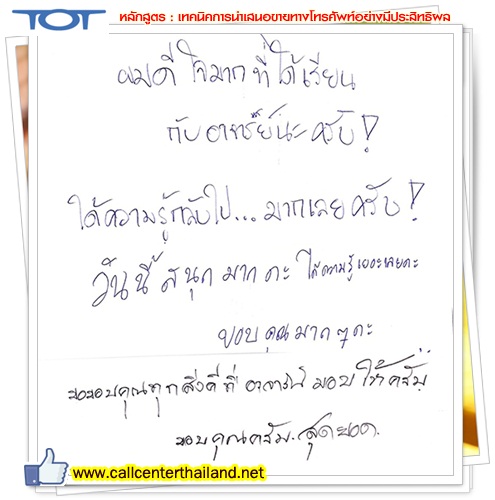 TOT
หลักสูตร : เทคนิคการนำเสนอขายทางโทรศัพท์อย่างมีประสิทธิผล
ผมดีใจมากที่ได้เรียน
กับอาจารย์นะครับ!
ได้ความรู้กลับไป...มากเลยครับ!
วันนี้สนุกมากคะ ได้ความรู้เยอะเลยคะ
ขอบคุณมากๆคะ
ขอขอบคุณทุกสิ่งดีที่อาจารย์มอบให้ครับ
ขอบคุณครับ. สุดยอด.
www.callcenterthailand.net